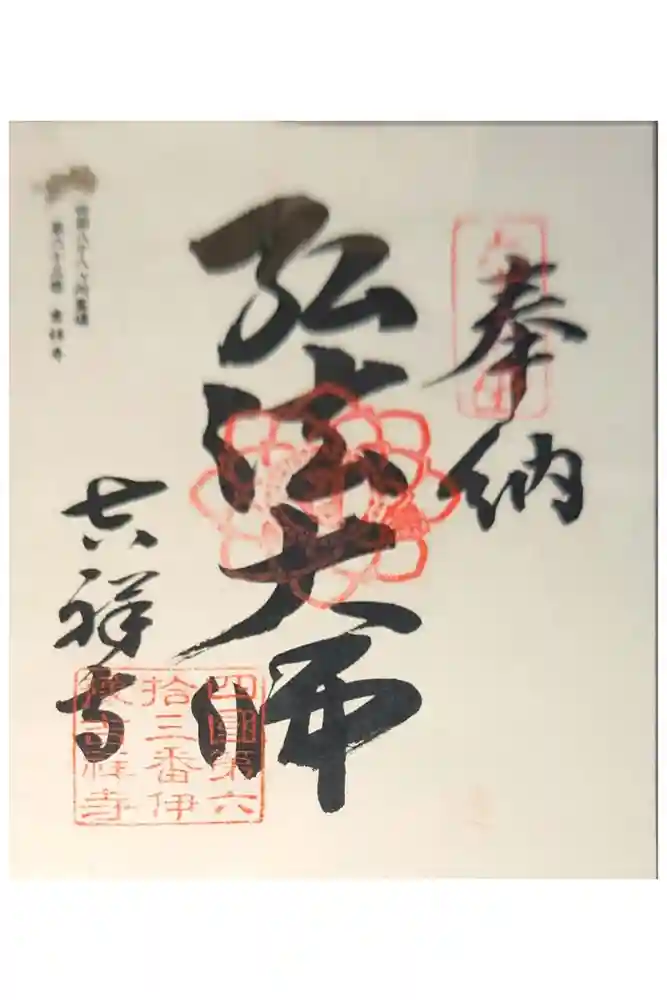 奉納
弘法大師
吉祥寺
四国八十八ヶ所霊場
第六十三番 吉祥寺
四國第六
拾三番伊
豫吉祥寺